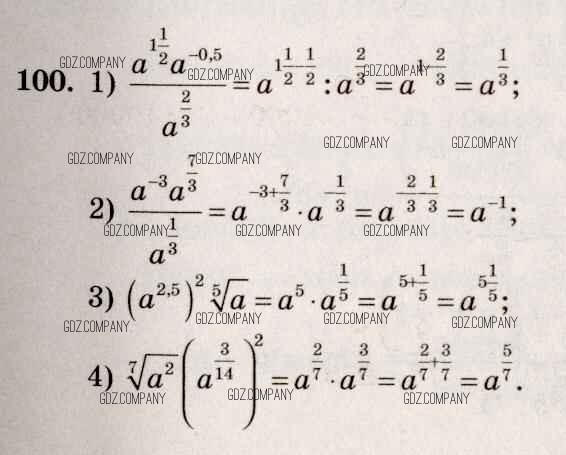 100. 1) \frac{a^{1\frac{1}{2}}a^{-0,5}}{a^{\frac{2}{3}}} = a^{1\frac{1}{2}-\frac{1}{2}} : a^{\frac{2}{3}} = a^{1-\frac{2}{3}} = a^{\frac{1}{3}};
GDZ.COMPANY GDZ.COMPANY GDZ.COMPANY
GDZ.COMPANY GDZ.COMPANY GDZ.COMPANY GDZ.COMPANY
2) \frac{a^{-3}a^{\frac{7}{3}}}{a^{\frac{1}{3}}} = a^{-3+\frac{7}{3}} · a^{-\frac{1}{3}} = a^{-\frac{2}{3}-\frac{1}{3}} = a^{-1};
GDZ.COMPANY GDZ.COMPANY GDZ.COMPANY
3) (a^{2,5})^2 \sqrt[5]{a} = a^5 · a^{\frac{1}{5}} = a^{5+\frac{1}{5}} = a^{5\frac{1}{5}};
GDZ.COMPANY GDZ.COMPANY GDZ.COMPANY GDZ.COMPANY
4) \sqrt[7]{a^2} (a^{\frac{3}{14}})^2 = a^{\frac{2}{7}} · a^{\frac{3}{7}} = a^{\frac{2}{7}+\frac{3}{7}} = a^{\frac{5}{7}}.
GDZ.COMPANY GDZ.COMPANY GDZ.COMPANY